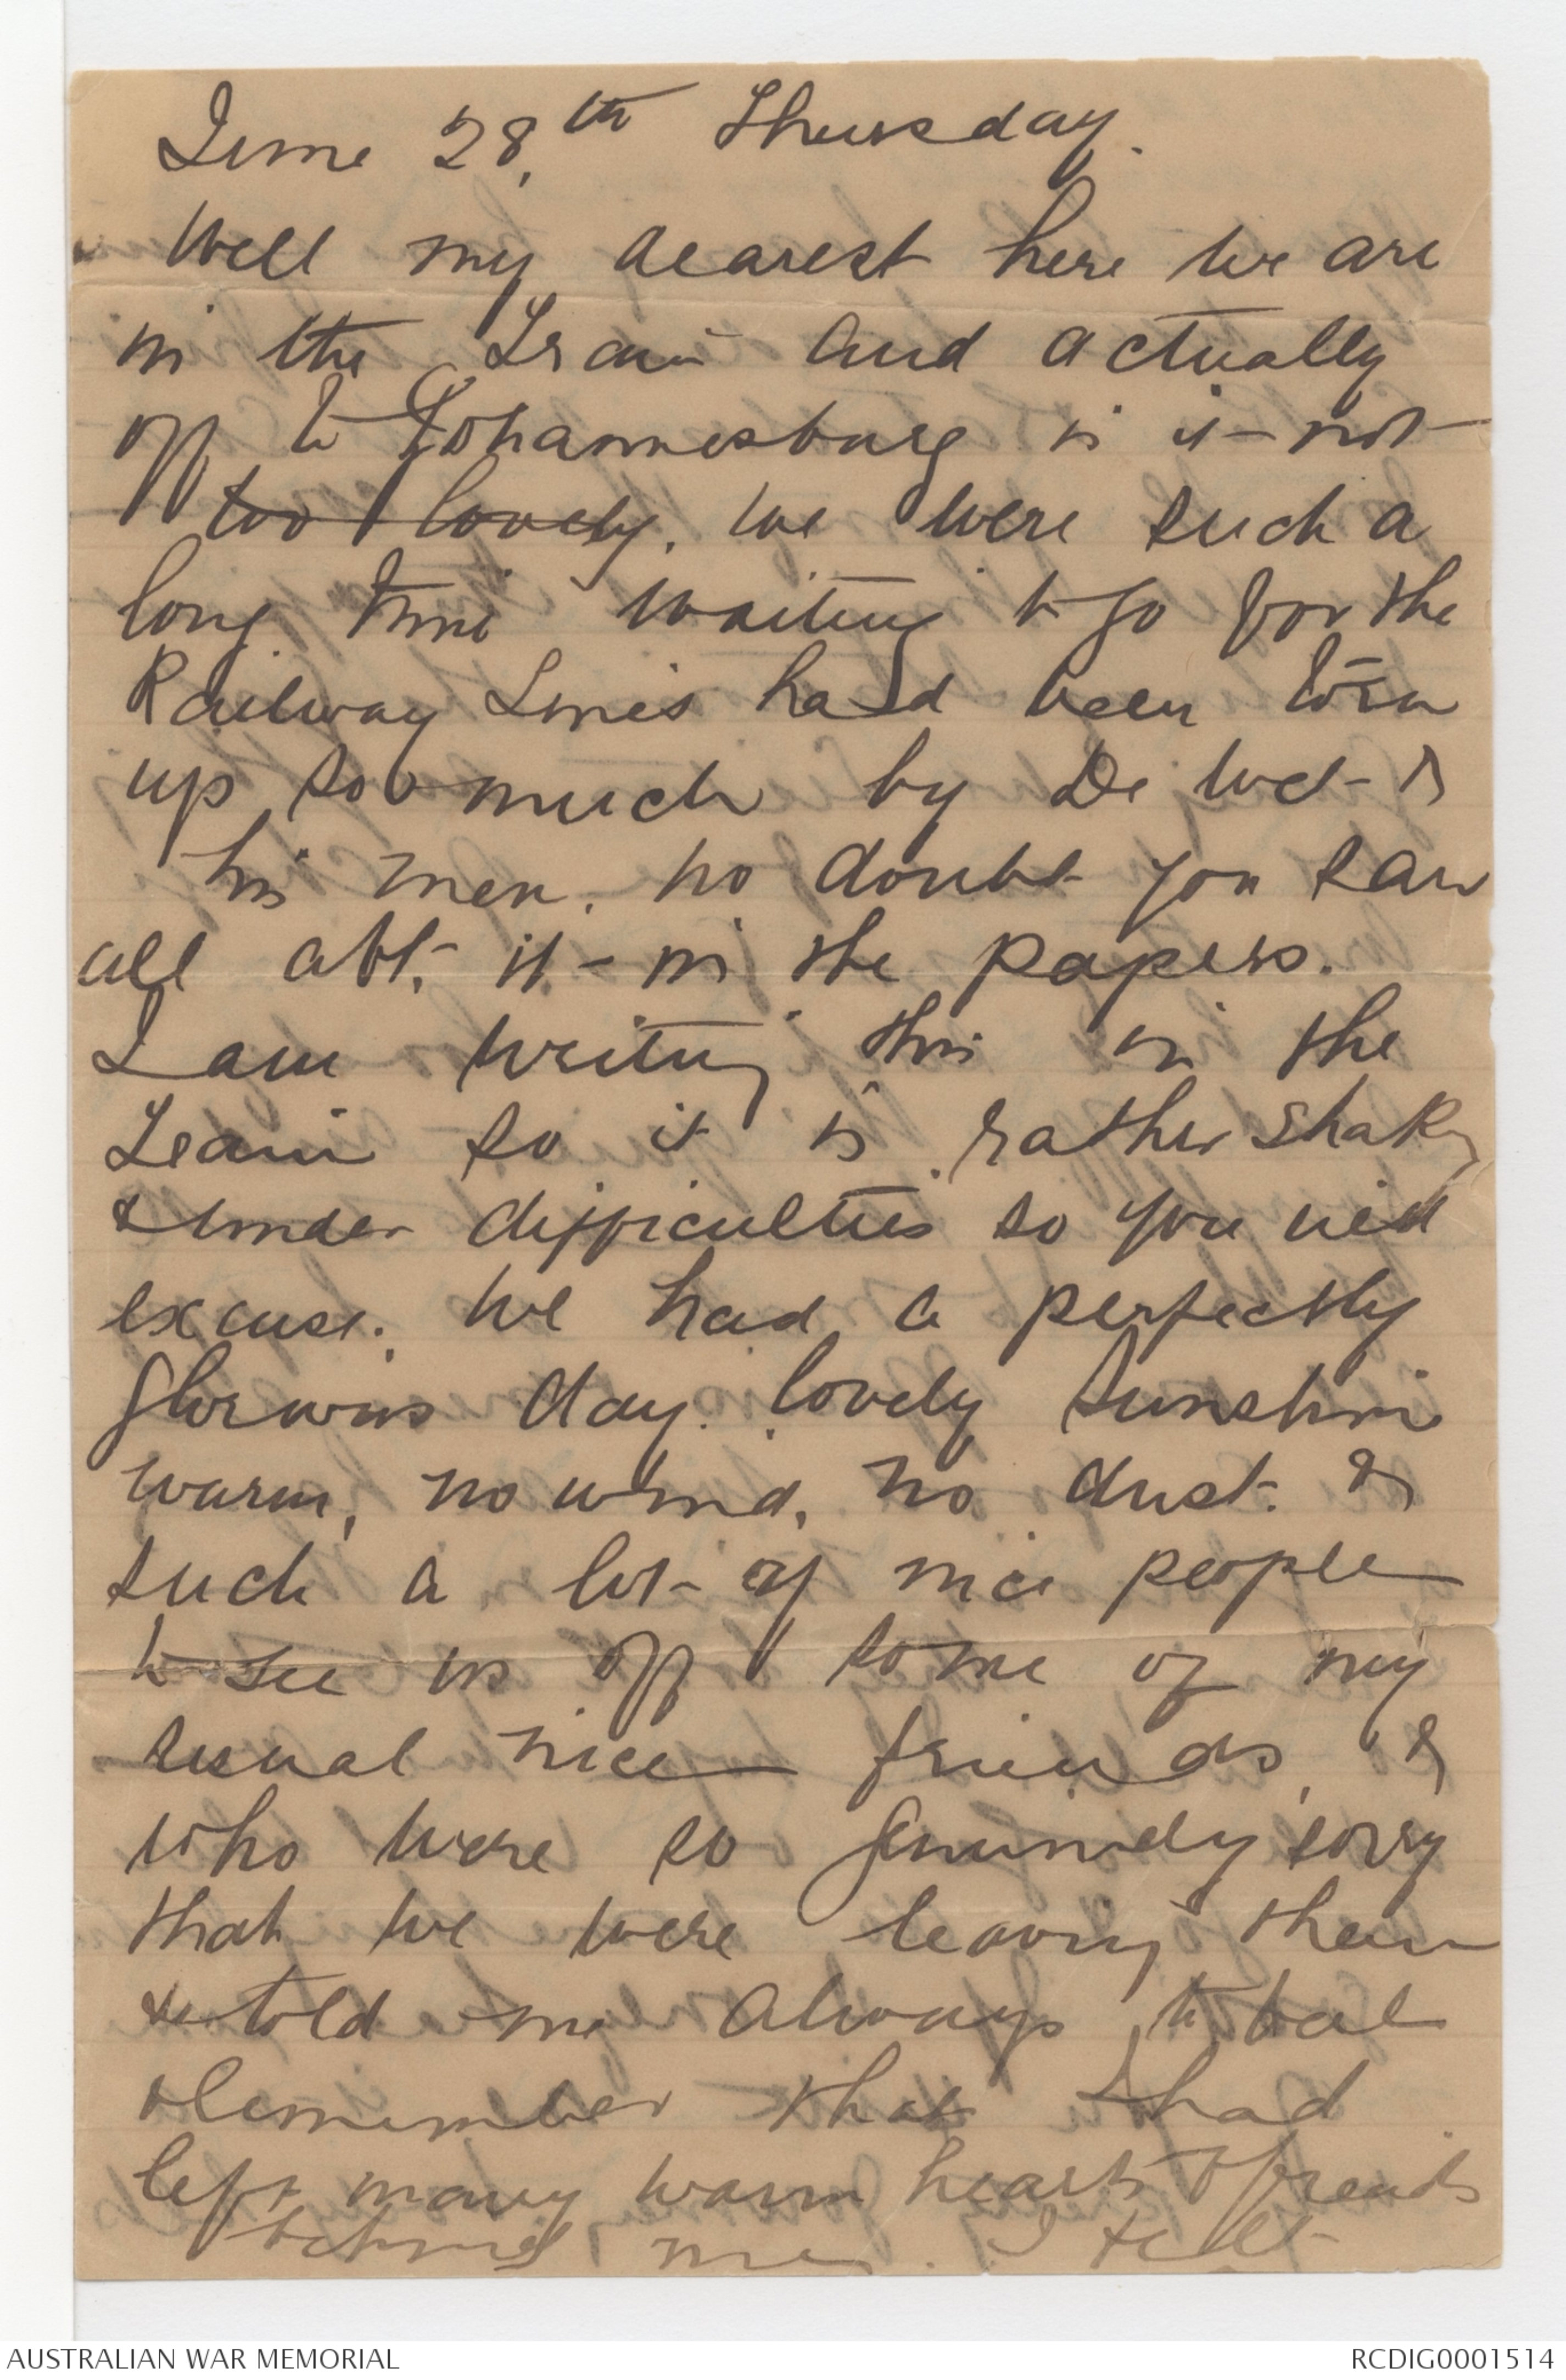 June 28,th Thursday.
Well my dearest here we are
in the Train and actually
off to Johannesburg is it not
too lovely. We were such a
long time waiting to go for the
Railway Lines had been torn
up so much by De Wet &
his men. no doubt you saw
all abt. it in the papers.
I am writing this in the
Train so it is rather shaky
& under difficulties so you will
excuse. We had a perfectly
glorious day. lovely sunshine
warm, no wind, no dust. &
such a lot of nice people
to see us off some of my
usual nice friends, &
who were so genuinely sorry
that we were leaving them
& told me always to
remember that I had
left many warm hearts & friends
behind me. I felt
AUSTRALIAN WAR MEMORIAL
RCDIG0001514